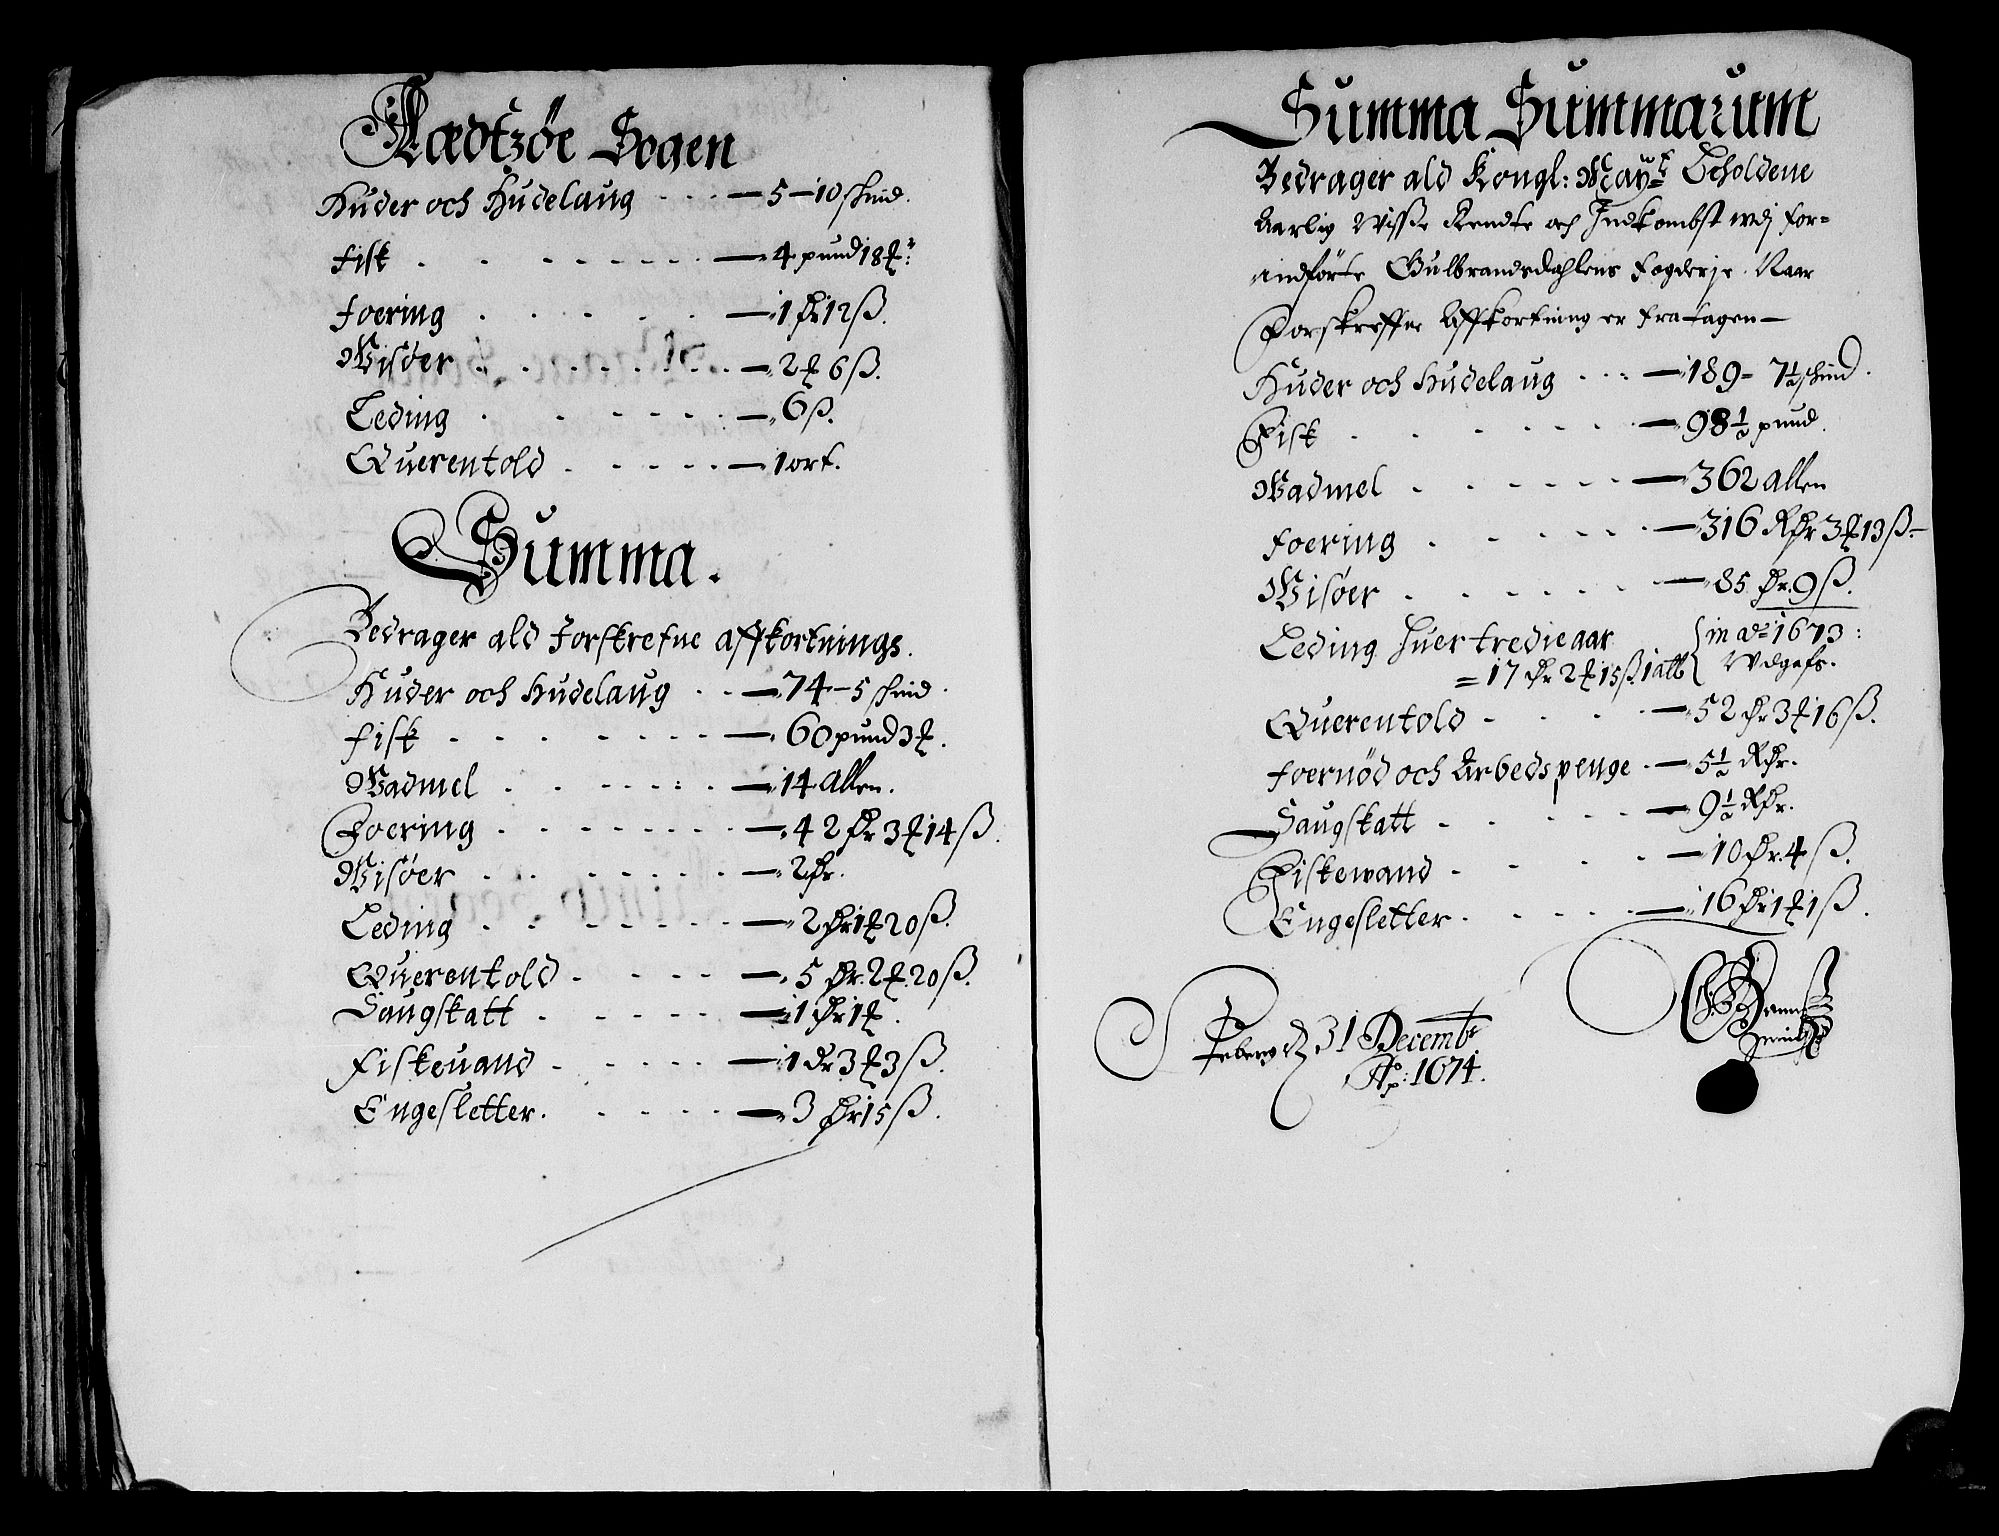 Rædtzöe Sogen
Huder och Hudelaug - - - — 5 - 10 skind.
fisk . - - - - - - — 4 pund 18 ℔:
foering . . . . . — 1 dr 12 ß.
Wisöer . . . . . . — 2 ℔ 6 ß.
Leding . - - - - - — 6 ß.
Querentold . - - - - — 1 ort.
Summa.
Bedrager ald Forskrefne affkortnings.
Huder och Hudelaug - - — 74 - 5 skind.
fisk - - - - - - - — 60 pund 3 ℔.
Wadmel . - - - - : - — 14 Allen.
Foering - - - - - - - — 42 dr 3 ℔ 14 ß.
Wisöer - - - - - - — 2 dr.
Leding - - - - - - — 2 dr 1 ℔ 20 ß.
Querentold - - - - — 5 dr. 2 ℔. 20 ß.
Saugskatt . - - - - — 1 dr 1 ℔.
Fiskeuand - - - - - — 1 dr 3 ℔ 3 ß.
Engesletter. - - - - — 3 dr 15 ß.
Summa Summarum
Bedrager ald Kongl: Mayts Beholdene
Aarlig Wisse Rendte och Indkombst udj for=
andförte Gulbrandsdahlens fogderje. Naar
Forskreffne Affkortning er fratagen —
Huder och Hudelaug - - - — 189 - 7½ skind.
Fisk . - - - - - — 98½ pund.
Wadmel . - - - - - — 362 allen
foering . - - - - — 316 Rdr 3 ℔ 13 ß. -
Wisöer . - - - - - — 85 dr. 9 ß.
Leding Huer tredie aar { in ao 1673:
= 17 dr 2 ℔ 15 ß 1 alb { Udgafs.
Querentold - - - - — 52 dr 3 ℔ 16 ß.
foernöd och Arbedspenge - — 5½ Rdr.
Saugskatt - - - - - — 9½ Rdr.
Fiskewand - - - - — 10 dr. 4 ß.
Engesletter. - - - - — 16 dr 1 ℔ 1 ß.
31 Decembr
Ao: 1674.